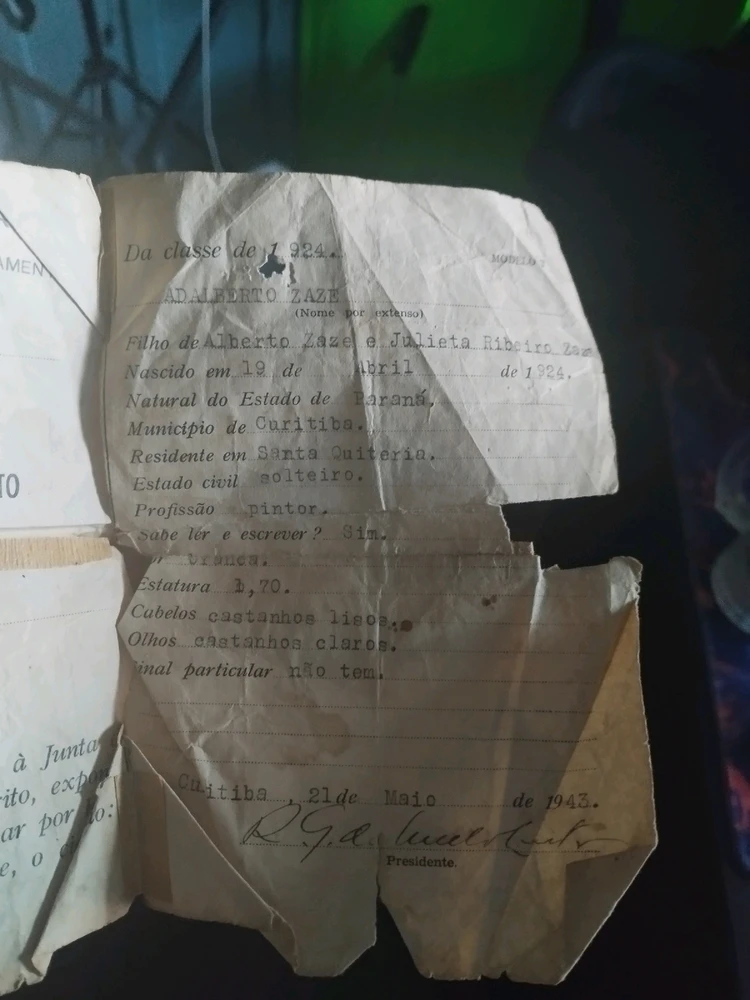 AMEN
TO
à Junta
rito, expor
ar por
e, o
Da classe de 1 924.
MODELO
ADALBERTO ZAZE
(Nome por extenso)
Filho de Alberto Zaze e Julieta Ribeiro Zaze
Nascido em 19 de Abril de 1924.
Natural do Estado de Paraná,
Município de Curitiba.
Residente em Santa Quiteria.
Estado civil solteiro.
Profissão pintor.
Sabe lêr e escrever? Sim.
branca.
Estatura 1,70.
Cabelos castanhos lisos.
Olhos castanhos claros.
inal particular não tem.
Curitiba, 21 de Maio de 1943.
Presidente.